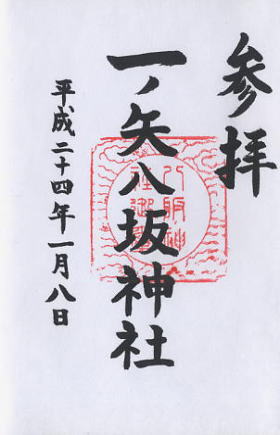 参拝
一ノ矢八坂神社
平成二十四年一月八日